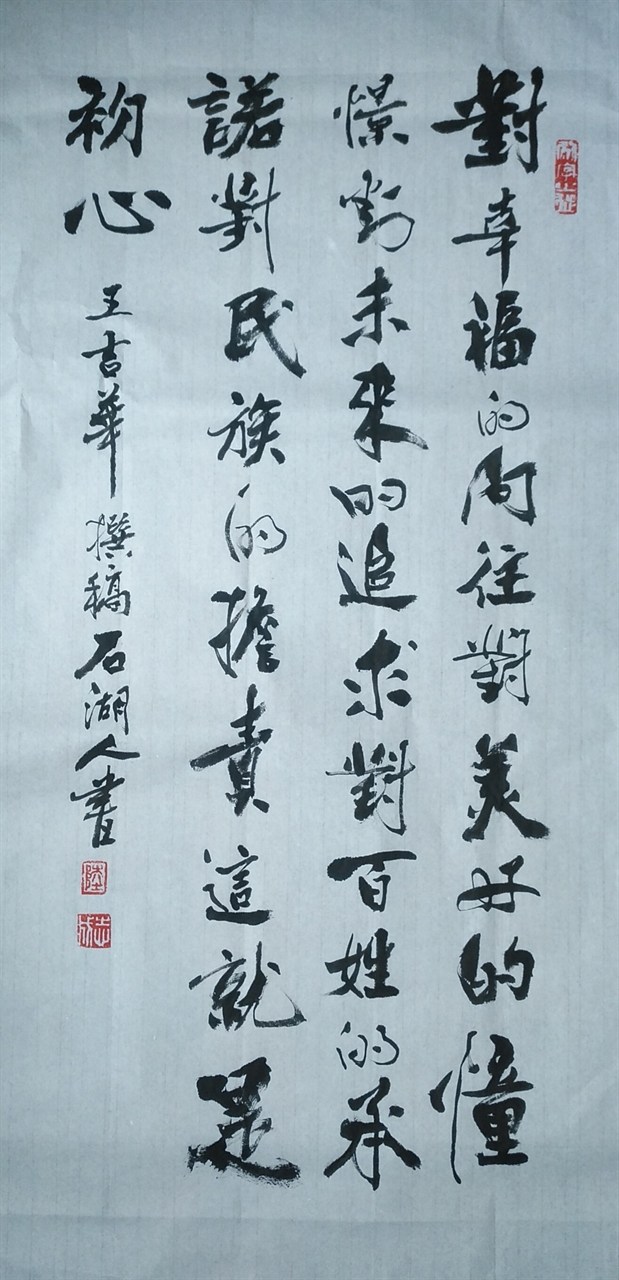 對幸福的向往對美好的憧
憬對未來的追求對百姓的承
諾對民族的擔責這就是
初心
王吉華撰稿石湖人書
陸